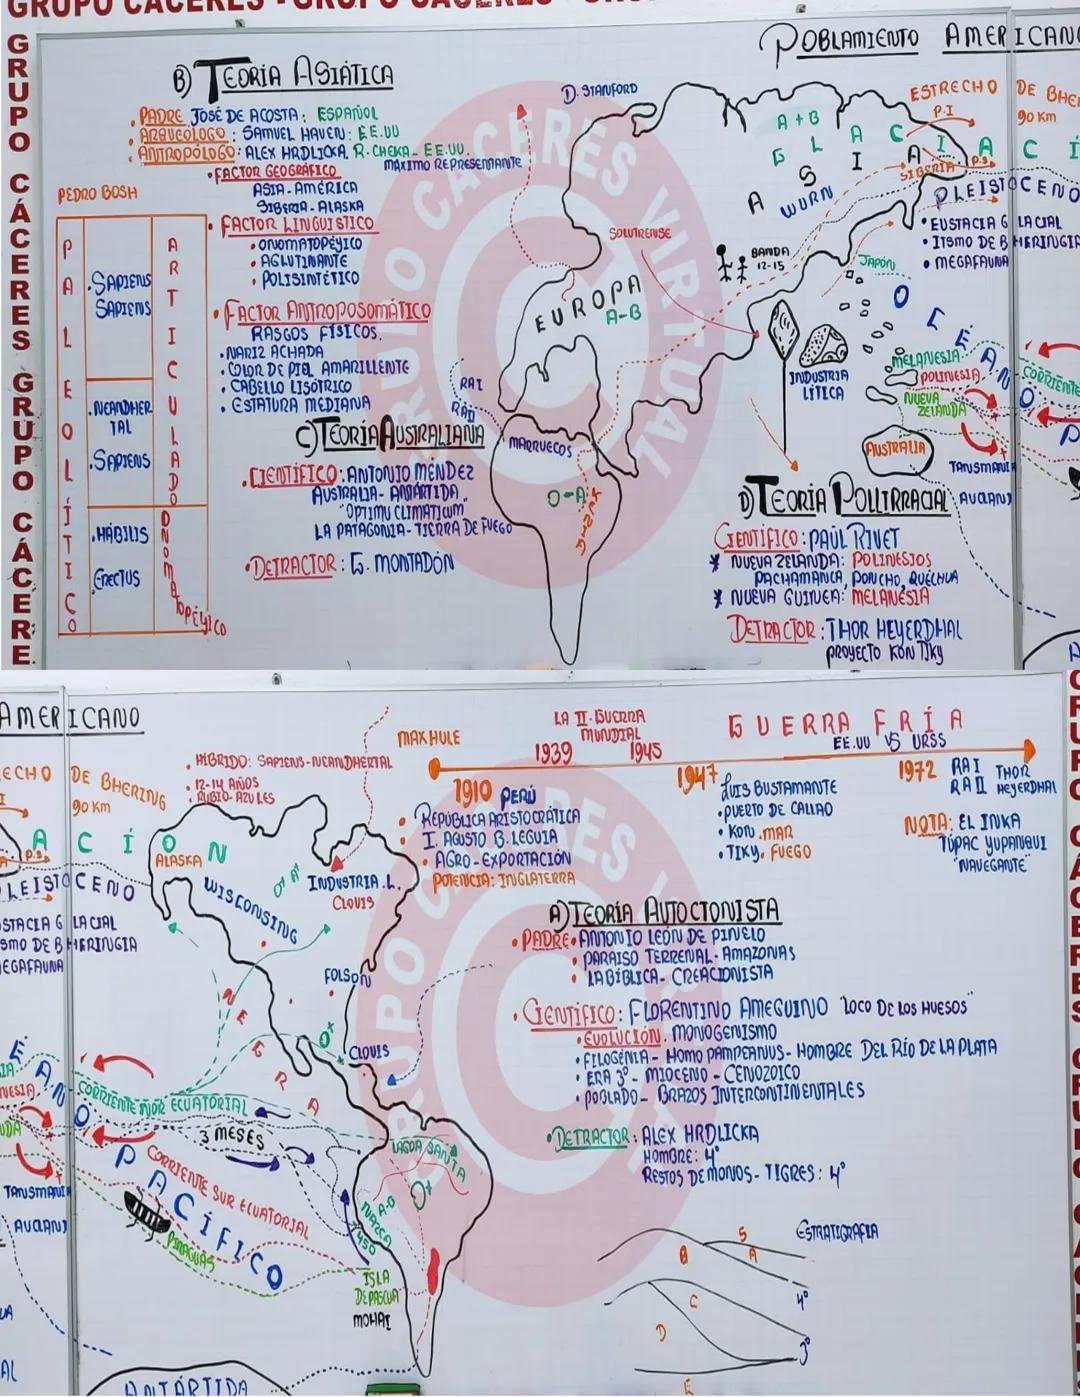 GRUPO CÁCERES - GRUPO CÁCERES
GRUPO CÁCERES GRUPO CÁCERE
GRUPO CÁCERES VIRTUAL
POBLAMIENTO AMERICANO
B) TEORÍA ASIÁTICA
. PADRE JOSÉ DE ACOSTA: ESPAÑOL
. ARQUEÓLOGO: SAMUEL HAVEN: EE.UU
. ANTROPÓLOGO: ALEX HRDLICKA. R. CHEKA - EE.UU.
MÁXIMO REPRESENTANTE
• FACTOR GEOGRÁFICO
ASIA - AMÉRICA
SIBERIA - ALASKA
• FACTOR LINGUISTICO
• ONOMATOPÉYICO
• AGLUTINANTE
• POLISINTÉTICO
• FACTOR ANTROPOSOMÁTICO
RASGOS FÍSICOS.
• NARIZ ACHADA
• COLOR DE PIEL AMARILLENTE
• CABELLO LISÓTRICO
• ESTATURA MEDIANA
PEDRO BOSH
PALEOLÍTICO
. SAPIENS SAPIENS
. NEANDHERTAL
. SAPIENS
. HÁBILIS
. ERECTUS
ARTICULADO
ONOMATOPÉYICO
C) TEORÍA AUSTRALIANA
. CIENTÍFICO: ANTONIO MENDEZ
AUSTRALIA - ANTÁRTIDA.
"OPTIMU CLIMATICUM"
LA PATAGONIA - TIERRA DE FUEGO
• DETRACTOR: G. MONTADÓN
D. STANFORD
SOLUTRENSE
EUROPA
A-B
RAI
RAII
MARRUECOS
O-A
A+B
GLACIACIÓN
ASIA
WURN
SIBERIA
ESTRECHO DE BHERING
P.I
90 Km
P.S
PLEISTOCENO
• EUSTACIA GLACIAL
• ITSMO DE BHERINGIA
• MEGAFAUNA
BANDA
12-15
JAPÓN
INDUSTRIA LÍTICA
OCÉANO
MELANESIA
POLINESIA
NUEVA ZELANDA
AUSTRALIA
TANSMANIA
CORRIENTE
D) TEORÍA POLIRRACIAL
CIENTÍFICO: PAÚL RIVET
* NUEVA ZELANDA: POLINESIOS
PACHAMANCA, PONCHO, QUÉCHUA
* NUEVA GUINEA: MELANESIA
DETRACTOR: THOR HEYERDHAL
PROYECTO KON TIKY
AMERICANO
ECHO DE BHERING
90 Km
P.S
ACIÓN
LEISTOCENO
STACIA GLACIAL
SMO DE BHERINGIA
EGAFAUNA
• HIBRIDO: SAPIENS-NEANDHERTAL
• 12-14 AÑOS
• RUBIO-AZULES
ALASKA
WISCONSING
INDUSTRIA .L.
CLOVIS
FOLSON
O+
CLOVIS
NEGRA
CORRIENTE NOR ECUATORIAL
3 MESES
CORRIENTE SUR ECUATORIAL
PACÍFICO
PIRAGUAS
TANSMANIA
ISLA DE PASCUA
MOHAI
LAGOA SANTA
O+
A-G
ANTÁRTIDA
MAX HULE
1910 PERÚ
• REPÚBLICA ARISTOCRÁTICA
I. AGUSTO B. LEGUIA
• AGRO-EXPORTACIÓN
POTENCIA: INGLATERRA
LA II. GUERRA MUNDIAL
1939 1945
GUERRA FRÍA
EE.UU VS URSS
1947
LUIS BUSTAMANTE
• PUERTO DE CALLAO
• KON. MAR
• TIKY. FUEGO
1972 RAI
RAII
THOR HEYERDHAL
NOTA: EL INKA
TÚPAC YUPANQUI
"NAVEGANTE"
A) TEORÍA AUTOCTONISTA
• PADRE • ANTONIO LEÓN DE PINELO
• PARAISO TERRENAL - AMAZONAS
• LA BÍBLICA - CREACIONISTA
. CIENTÍFICO: FLORENTINO AMEGUINO "LOCO DE LOS HUESOS"
• EVOLUCIÓN. MONOGENISMO
• FILOGÉNIA - HOMO PAMPEANUS - HOMBRE DEL RÍO DE LA PLATA
• ERA 3º - MIOCENO - CENOZOICO
• POBLADO - BRAZOS INTERCONTINENTALES
• DETRACTOR: ALEX HRDLICKA
HOMBRE: 4º
RESTOS DE MONOS - TIGRES: 4º
ESTRATIGRAFIA
S
B
A
C
4º
D
3º
E